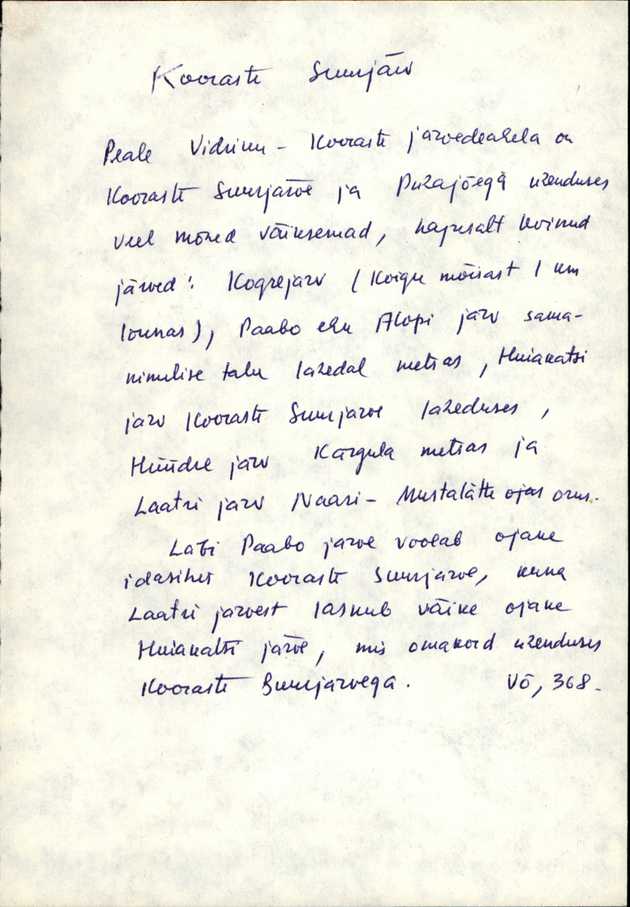 Kooraste Suurjärv
Peale Vidrinu - Kooraste järvedeahela on
Kooraste Suurjärve ja Puzajõega ühenduses
veel mõned väiksemad, hapusalt kõinud
järved: Kogrejärv (Koigu mõisast 1 km
lõunas), Paabo ehu Alopi järv sama-
nimelise talu lähedal metsas, Huianatsi
järv Kooraste Suurjärve läheduses,
Hüüdre järv Kärgula metsas ja
Laatsi järv Naari - Mustalätte ojas orus.
Läbi Paabo järve voolab ojane
idasihis Kooraste Suurjärve, kuna
Laatsi järvest laskub väike ojane
Huianatsi järve, mis omakord ühenduses
Kooraste Suurjärvega. Võ, 368.